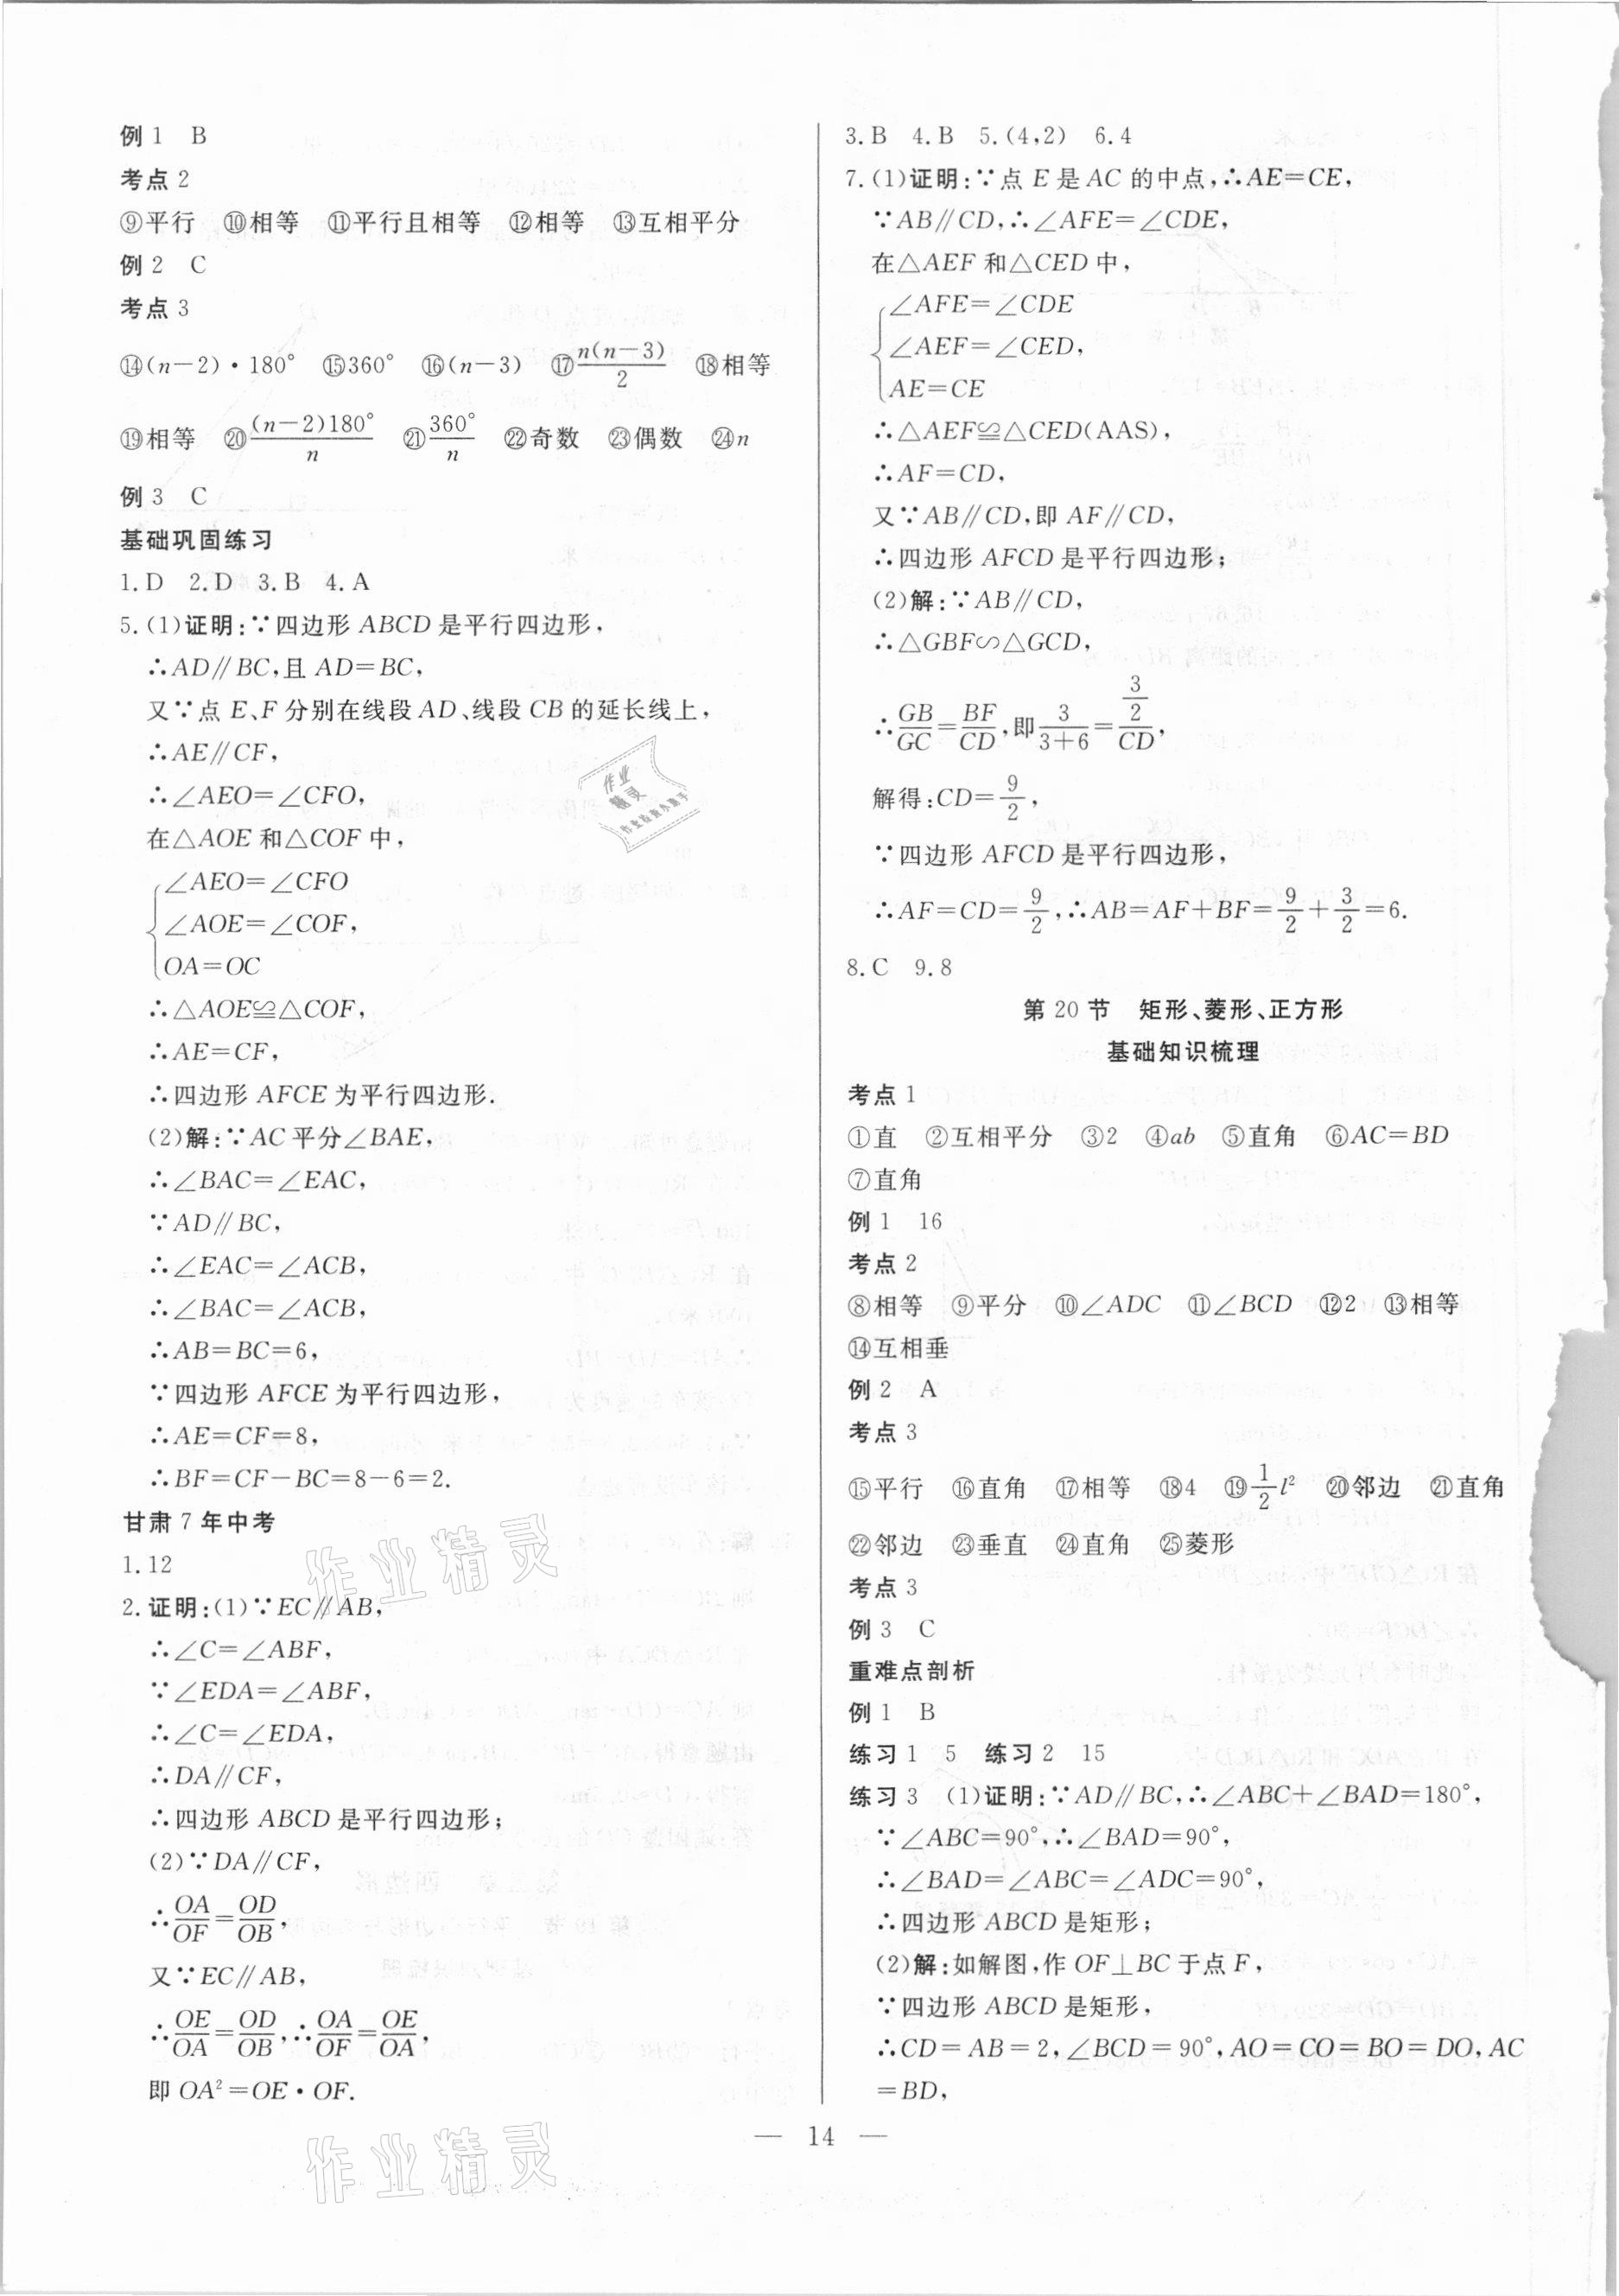 例1　B
考点2
⑨平行　⑩相等　⑪平行且相等　⑫相等　⑬互相平分
例2　C
考点3
⑭(n−2)·180°　⑮360°　⑯(n−3)　⑰n(n−3)/2　⑱相等
⑲相等　⑳(n−2)180°/n　㉑360°/n　㉒奇数　㉓偶数　㉔n
例3　C
基础巩固练习
1.D　2.D　3.B　4.A
5.(1)证明:∵四边形ABCD是平行四边形,
∴AD∥BC,且AD=BC,
又∵点E、F分别在线段AD、线段CB的延长线上,
∴AE∥CF,
∴∠AEO=∠CFO,
在△AOE和△COF中,
∠AEO=∠CFO
∠AOE=∠COF,
OA=OC
∴△AOE≌△COF,
∴AE=CF,
∴四边形AFCE为平行四边形.
(2)解:∵AC平分∠BAE,
∴∠BAC=∠EAC,
∵AD∥BC,
∴∠EAC=∠ACB,
∴∠BAC=∠ACB,
∴AB=BC=6,
∵四边形AFCE为平行四边形,
∴AE=CF=8,
∴BF=CF−BC=8−6=2.
甘肃7年中考
1.12
2.证明:(1)∵EC∥AB,
∴∠C=∠ABF,
∵∠EDA=∠ABF,
∴∠C=∠EDA,
∴DA∥CF,
∴四边形ABCD是平行四边形;
(2)∵DA∥CF,
∴OA/OF=OD/OB,
又∵EC∥AB,
∴OE/OA=OD/OB,∴OA/OF=OE/OA,
即OA²=OE·OF.
3.B　4.B　5.(4,2)　6.4
7.(1)证明:∵点E是AC的中点,∴AE=CE,
∵AB∥CD,∴∠AFE=∠CDE,
在△AEF和△CED中,
∠AFE=∠CDE
∠AEF=∠CED,
AE=CE
∴△AEF≌△CED(AAS),
∴AF=CD,
又∵AB∥CD,即AF∥CD,
∴四边形AFCD是平行四边形;
(2)解:∵AB∥CD,
∴△GBF∽△GCD,
∴GB/GC=BF/CD,即3/(3+6)=(3/2)/CD,
解得:CD=9/2,
∵四边形AFCD是平行四边形,
∴AF=CD=9/2,∴AB=AF+BF=9/2+3/2=6.
8.C　9.8
第20节　矩形、菱形、正方形
基础知识梳理
考点1
①直　②互相平分　③2　④ab　⑤直角　⑥AC=BD
⑦直角
例1　16
考点2
⑧相等　⑨平分　⑩∠ADC　⑪∠BCD　⑫2　⑬相等
⑭互相垂
例2　A
考点3
⑮平行　⑯直角　⑰相等　⑱4　⑲1/2 l²　⑳邻边　㉑直角
㉒邻边　㉓垂直　㉔直角　㉕菱形
考点3
例3　C
重难点剖析
例1　B
练习1　5　练习2　15
练习3　(1)证明:∵AD∥BC,∴∠ABC+∠BAD=180°,
∵∠ABC=90°,∴∠BAD=90°,
∴∠BAD=∠ABC=∠ADC=90°,
∴四边形ABCD是矩形;
(2)解:如解图,作OF⊥BC于点F,
∵四边形ABCD是矩形,
∴CD=AB=2,∠BCD=90°,AO=CO=BO=DO,AC
=BD,
— 14 —
作业精灵
作业精灵
作业精灵